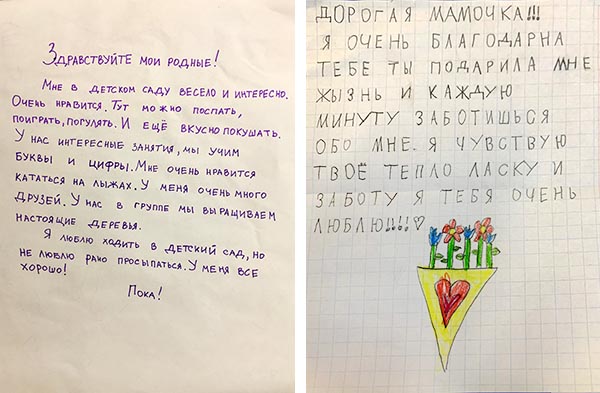 Здравствуйте мои родные!
Мне в детском саду весело и интересно.
Очень нравится. Тут можно поспать,
поиграть, погулять. И ещё вкусно покушать.
У нас интересные занятия, мы учим
буквы и цифры. Мне очень нравится
кататься на лыжах. У меня очень много
друзей. У нас в группе мы выращиваем
настоящие деревья.
Я люблю ходить в детский сад, но
не люблю рано просыпаться. У меня все
хорошо!
Пока!
ДОРОГАЯ МАМОЧКА!!!
Я ОЧЕНЬ БЛАГОДАРНА
ТЕБЕ ТЫ ПОДАРИЛА МНЕ
ЖИЗНЬ И КАЖДУЮ
МИНУТУ ЗАБОТИШЬСЯ
ОБО МНЕ. Я ЧУВСТВУЮ
ТВОЁ ТЕПЛО ЛАСКУ И
ЗАБОТУ Я ТЕБЯ ОЧЕНЬ
ЛЮБЛЮ!!!!♡